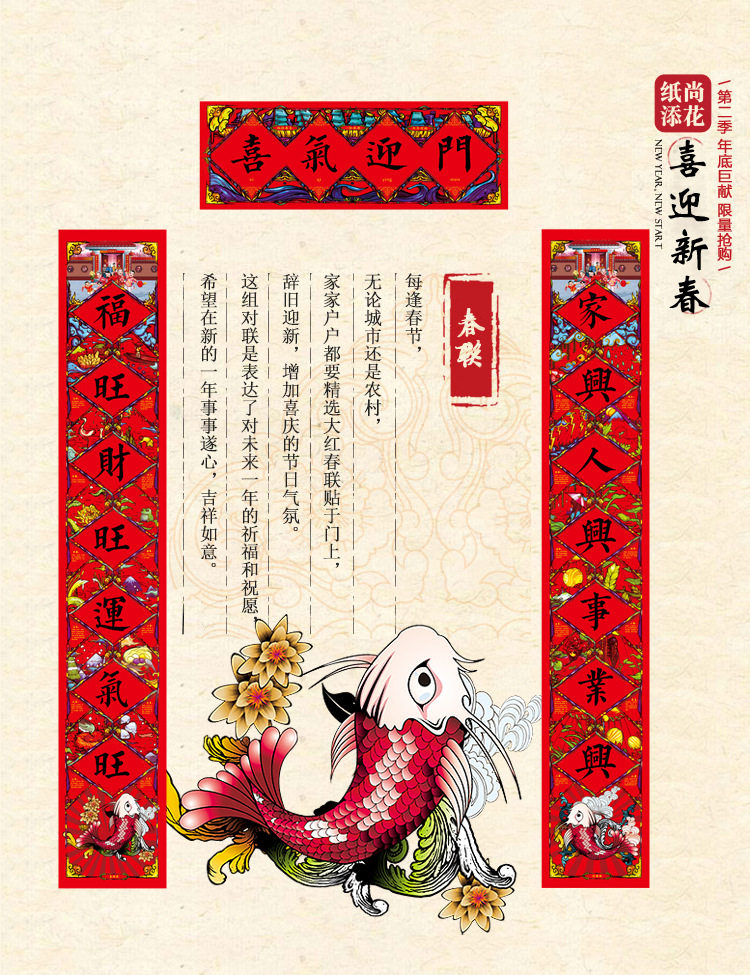 喜氣迎門
尚花
纸添
第二季 年底巨献 限量抢购
喜迎新春
NEW YEAR, NEW START
家興人興事業興
福旺財旺運氣旺
春联
每逢春节，
无论城市还是农村，
家家户户都要精选大红春联贴于门上，
辞旧迎新，增加喜庆的节日气氛。
这组对联是表达了对未来一年的祈福和祝愿
希望在新的一年事事遂心，吉祥如意。